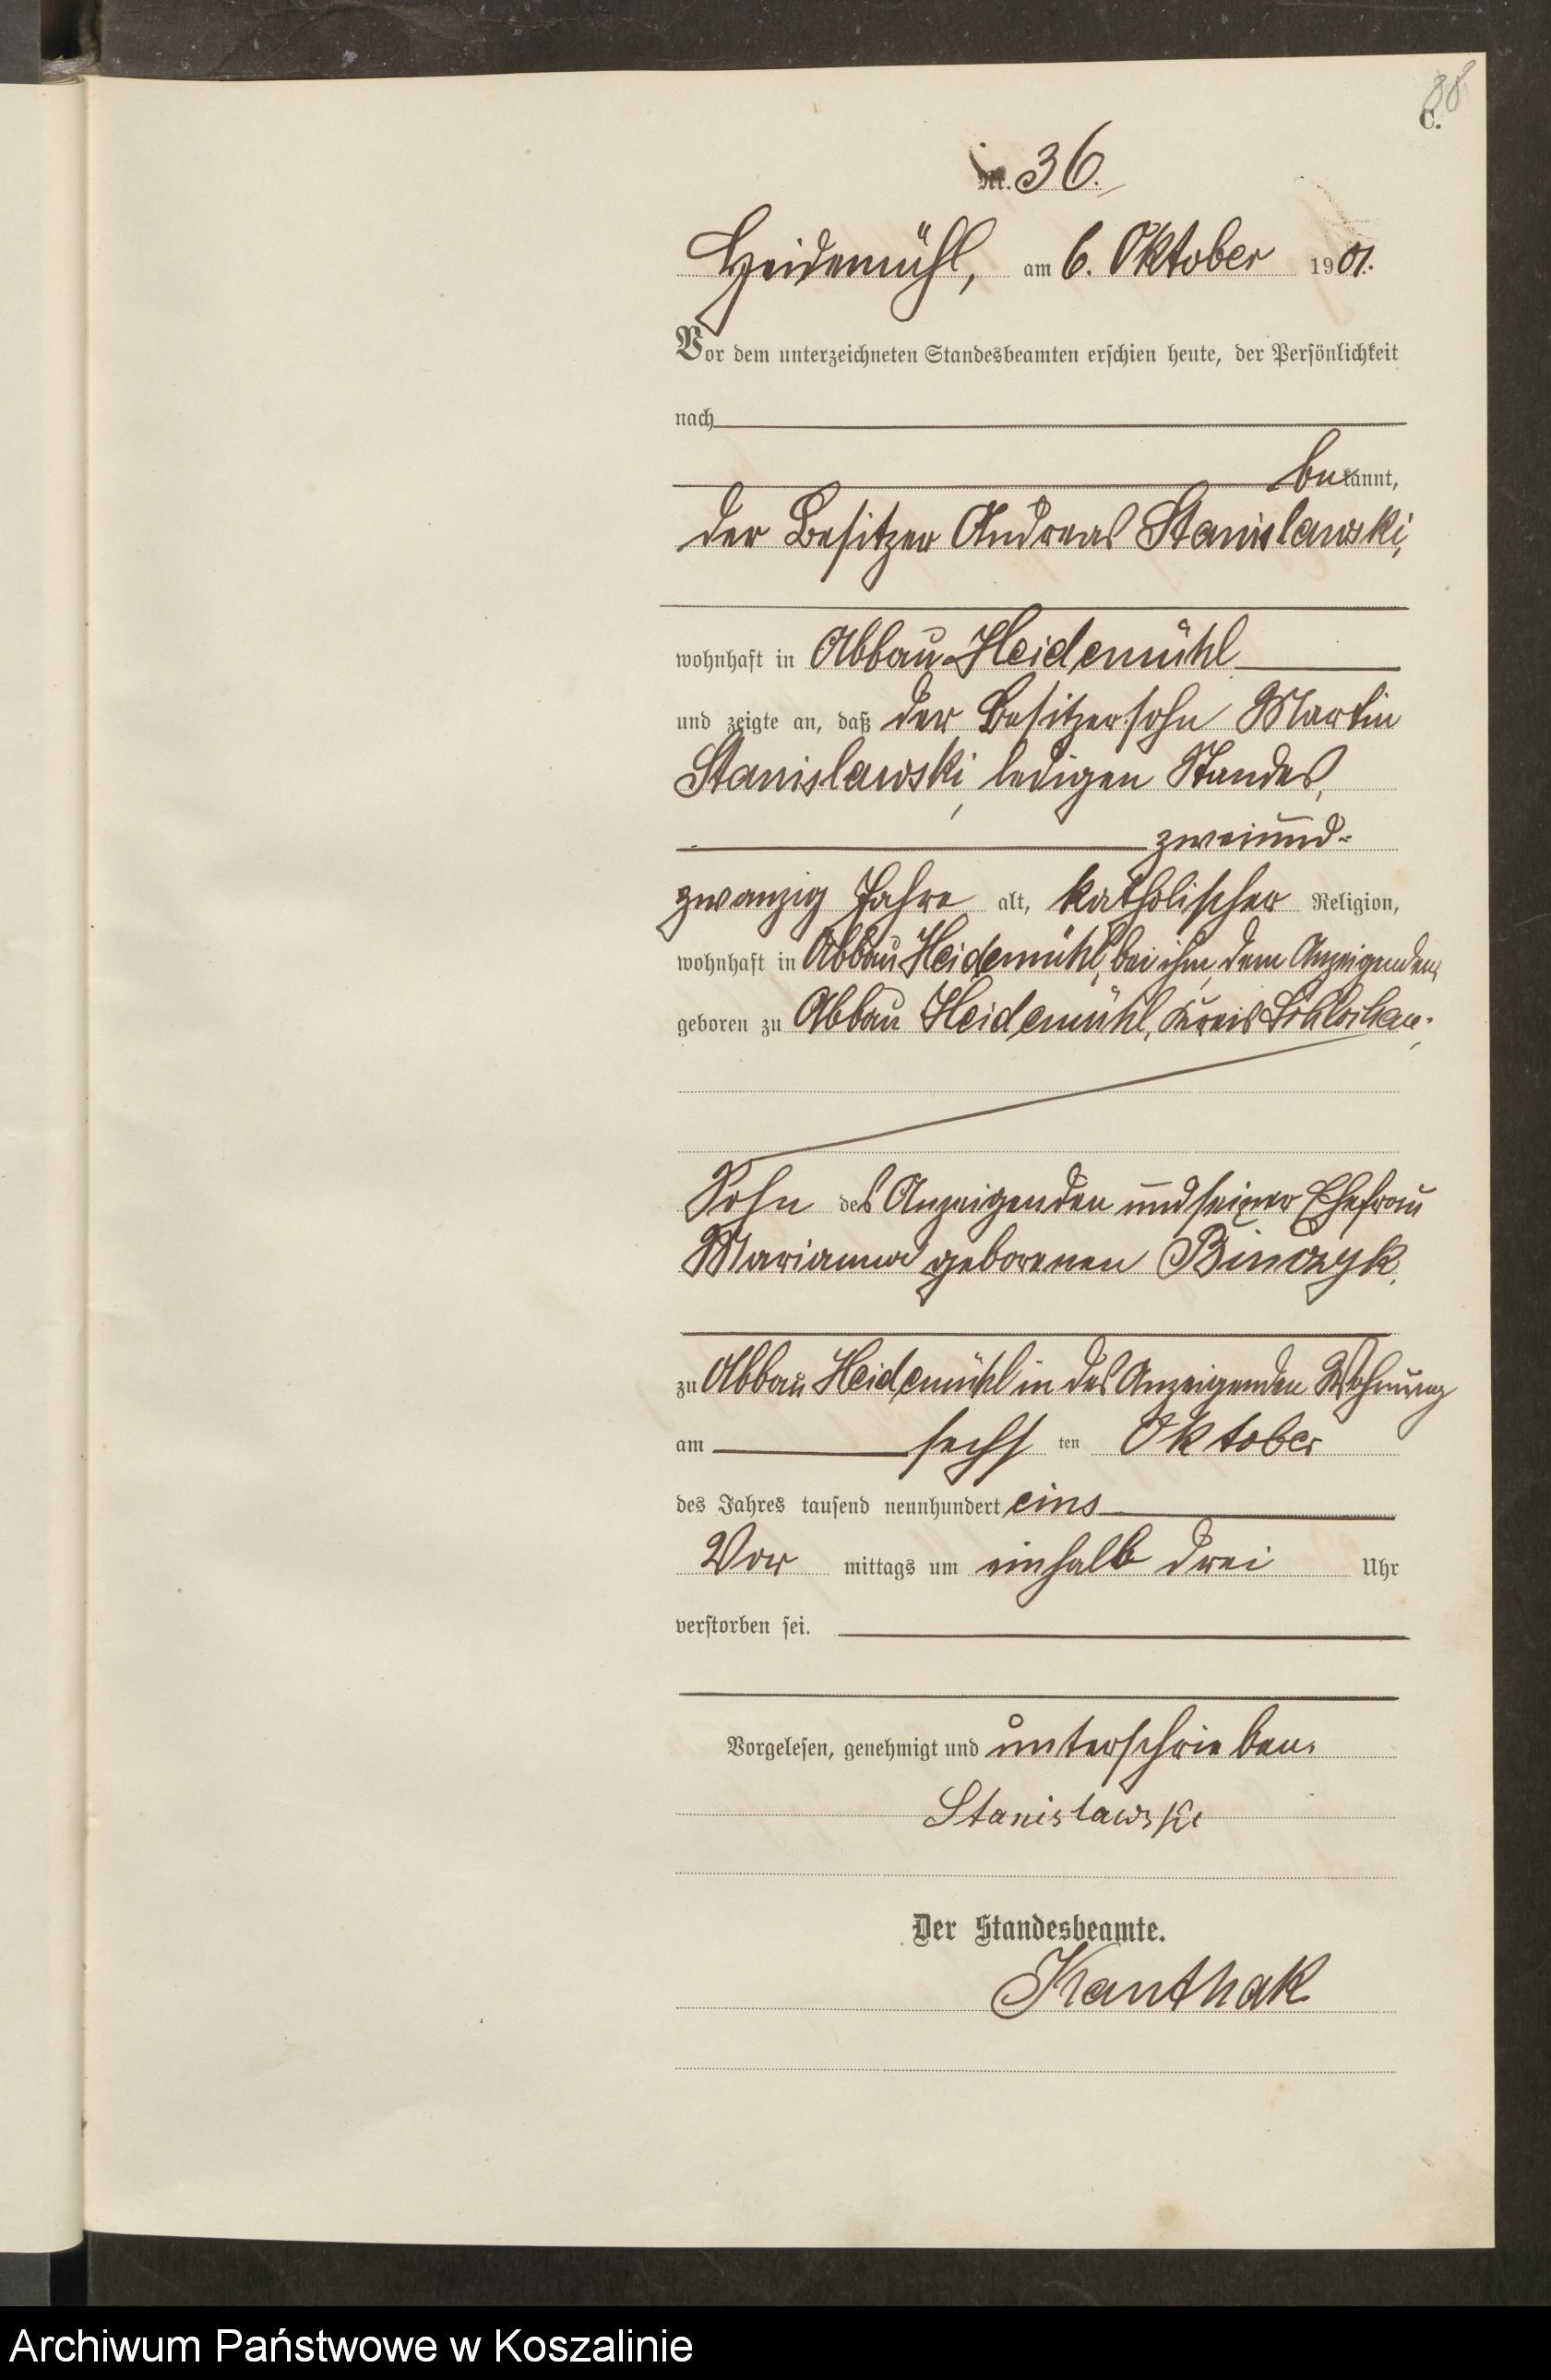 88
C.
Nr. 36.
Heidemühl, am 6. Oktober 1901.
Vor dem unterzeichneten Standesbeamten erschien heute, der Persönlichkeit
nach
bekannt,
der Besitzer Andreas Stanislawski,
wohnhaft in Abbau Heidemühl
und zeigte an, daß der Besitzersohn Martin
Stanislawski, ledigen Standes,
zweiund-
zwanzig Jahre alt, katholischer Religion,
wohnhaft in Abbau Heidemühl, bei ihm, dem Anzeigenden,
geboren zu Abbau Heidemühl, Kreis Schlochau,
Sohn des Anzeigenden und seiner Ehefrau
Marianna geborenen Binczyk,
zu Abbau Heidemühl in des Anzeigenden Wohnung
am sechsten Oktober
des Jahres tausend neunhundert eins
Vor mittags um einhalb drei Uhr
verstorben sei.
Vorgelesen, genehmigt und unterschrieben.
Stanislawski
Der Standesbeamte.
Kanthak
Archiwum Państwowe w Koszalinie